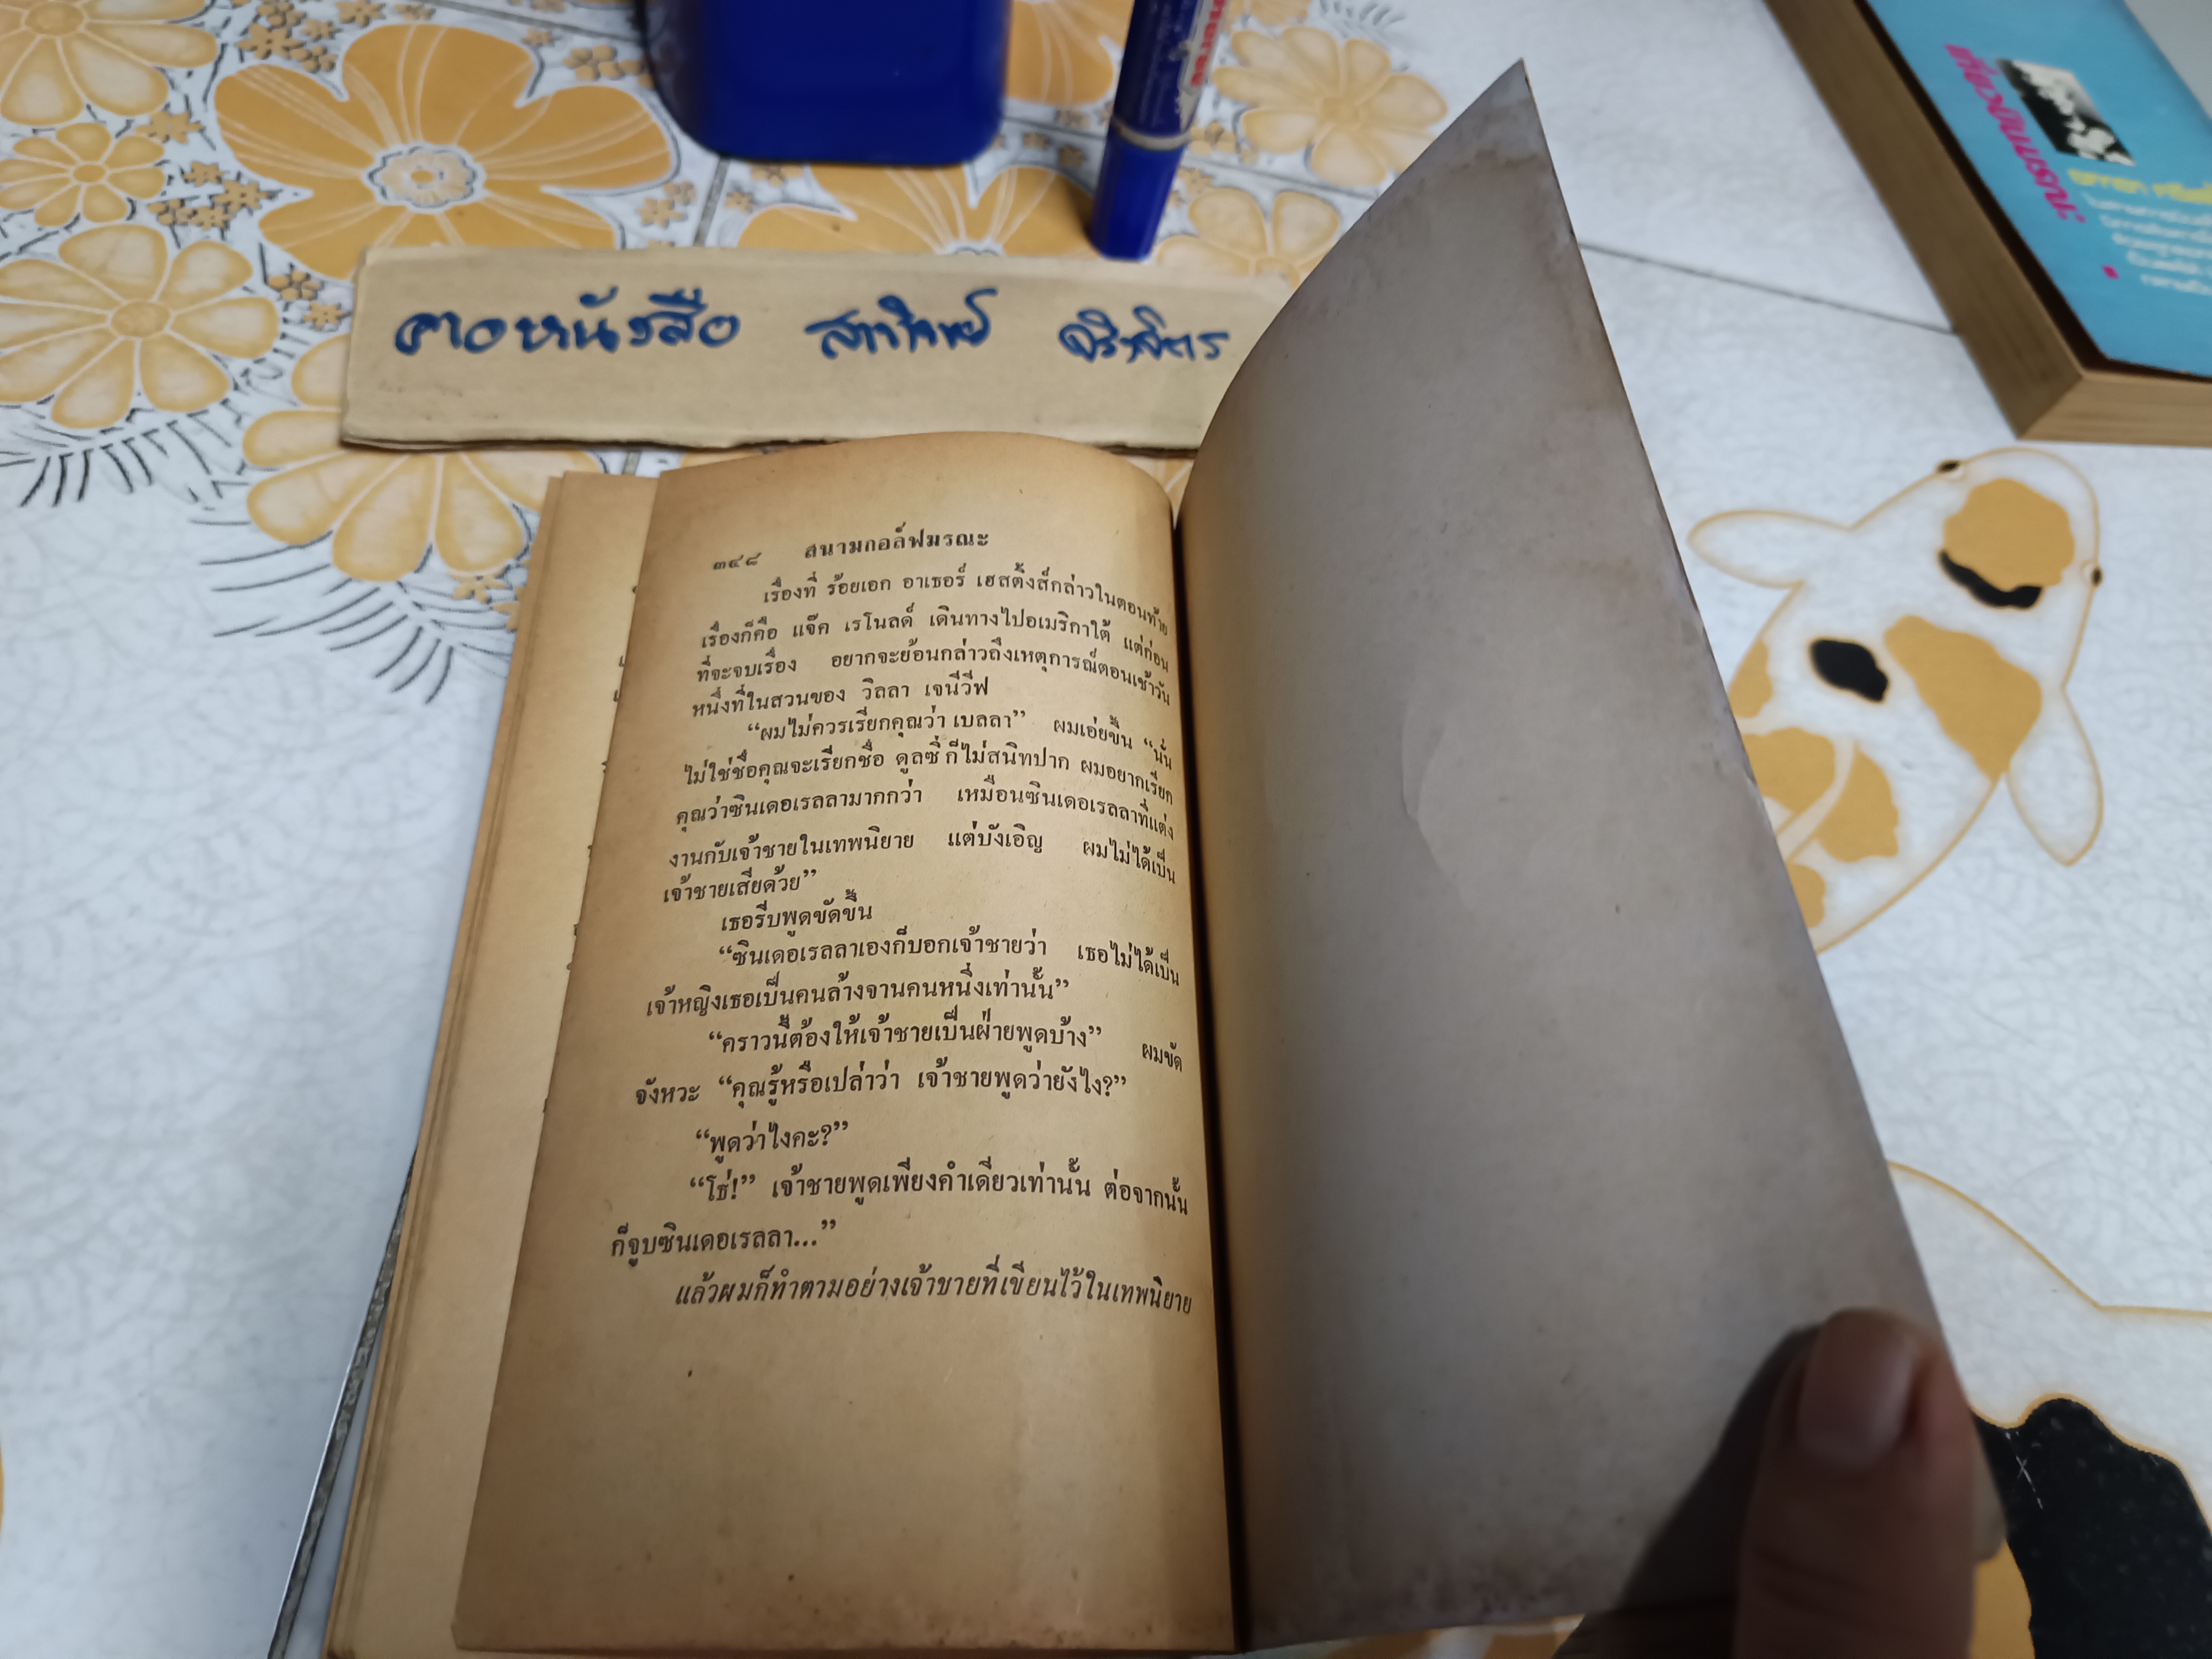 ๓๔๘ สนามกอล์ฟมรณะ
เรื่องที่ ร้อยเอก อาเธอร์ เฮสติ้งส์กล่าวในตอนท้าย
เรื่องก็คือ แจ๊ค เรโนลด์ เดินทางไปอเมริกาใต้ แต่ก่อน
ที่จะจบเรื่อง อยากจะย้อนกล่าวถึงเหตุการณ์ตอนเช้าวัน
หนึ่งที่ในสวนของ วิลลา เจนีวีฟ
“ผมไม่ควรเรียกคุณว่า เบลลา” ผมเอ่ยขึ้น “นั่น
ไม่ใช่ชื่อคุณจะเรียกชื่อ ดูลซี่ ก็ไม่สนิทปาก ผมอยากเรียก
คุณว่าซินเดอเรลลามากกว่า เหมือนซินเดอเรลลาที่แต่ง
งานกับเจ้าชายในเทพนิยาย แต่บังเอิญ ผมไม่ได้เป็น
เจ้าชายเสียด้วย”
เธอรีบพูดขัดขึ้น
“ซินเดอเรลลาเองก็บอกเจ้าชายว่า เธอไม่ได้เป็น
เจ้าหญิงเธอเป็นคนล้างจานคนหนึ่งเท่านั้น”
“คราวนี้ต้องให้เจ้าชายเป็นฝ่ายพูดบ้าง” ผมขัด
จังหวะ “คุณรู้หรือเปล่าว่า เจ้าชายพูดว่ายังไง?”
“พูดว่าไงคะ?”
“โธ่!” เจ้าชายพูดเพียงคำเดียวเท่านั้น ต่อจากนั้น
ก็จูบซินเดอเรลลา...”
แล้วผมก็ทำตามอย่างเจ้าชายที่เขียนไว้ในเทพนิยาย